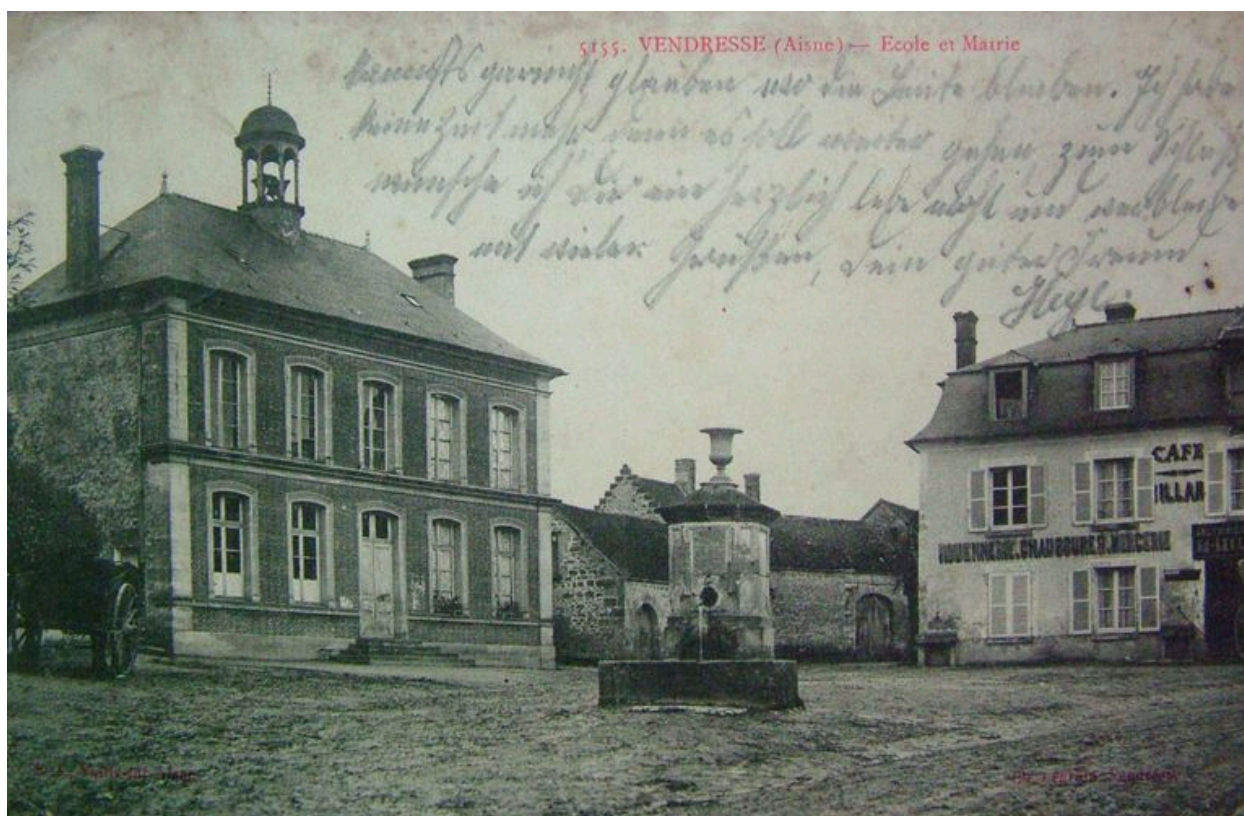 5155. VENDRESSE (Aisne) — Ecole et Mairie
kannst garnicht glauben wo die Leute bleiben. Ich habe
keine Zeit mehr, denn es soll weiter gehen, zum Schluß
wünsche ich Dir ein herzlich lebe wohl und verbleibe
mit vielen Grüßen, Dein guter Freund
CAFE
BILLAR
ROUENNERIE, CHAUSSURES, MERCERIE